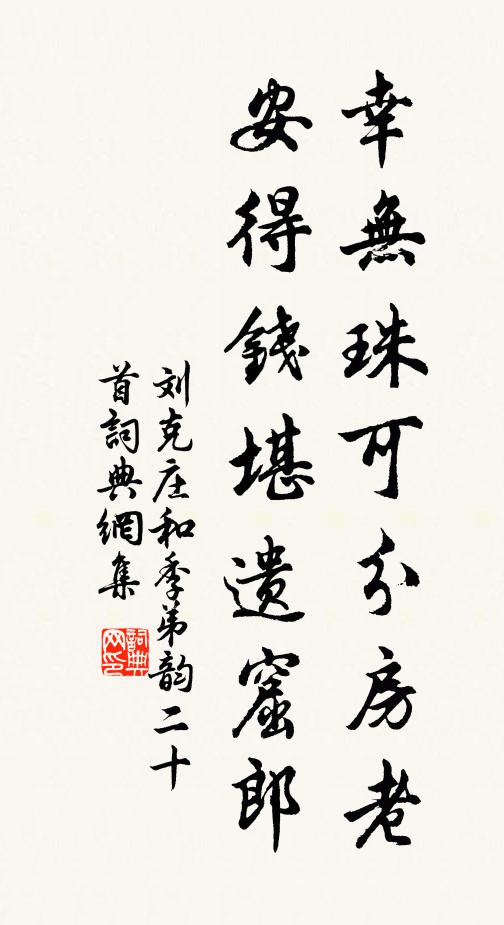 幸無珠可分房老
安得錢堪遺窟郎
刘克庄和季弟韵二十
首詞典網集
詞典网印